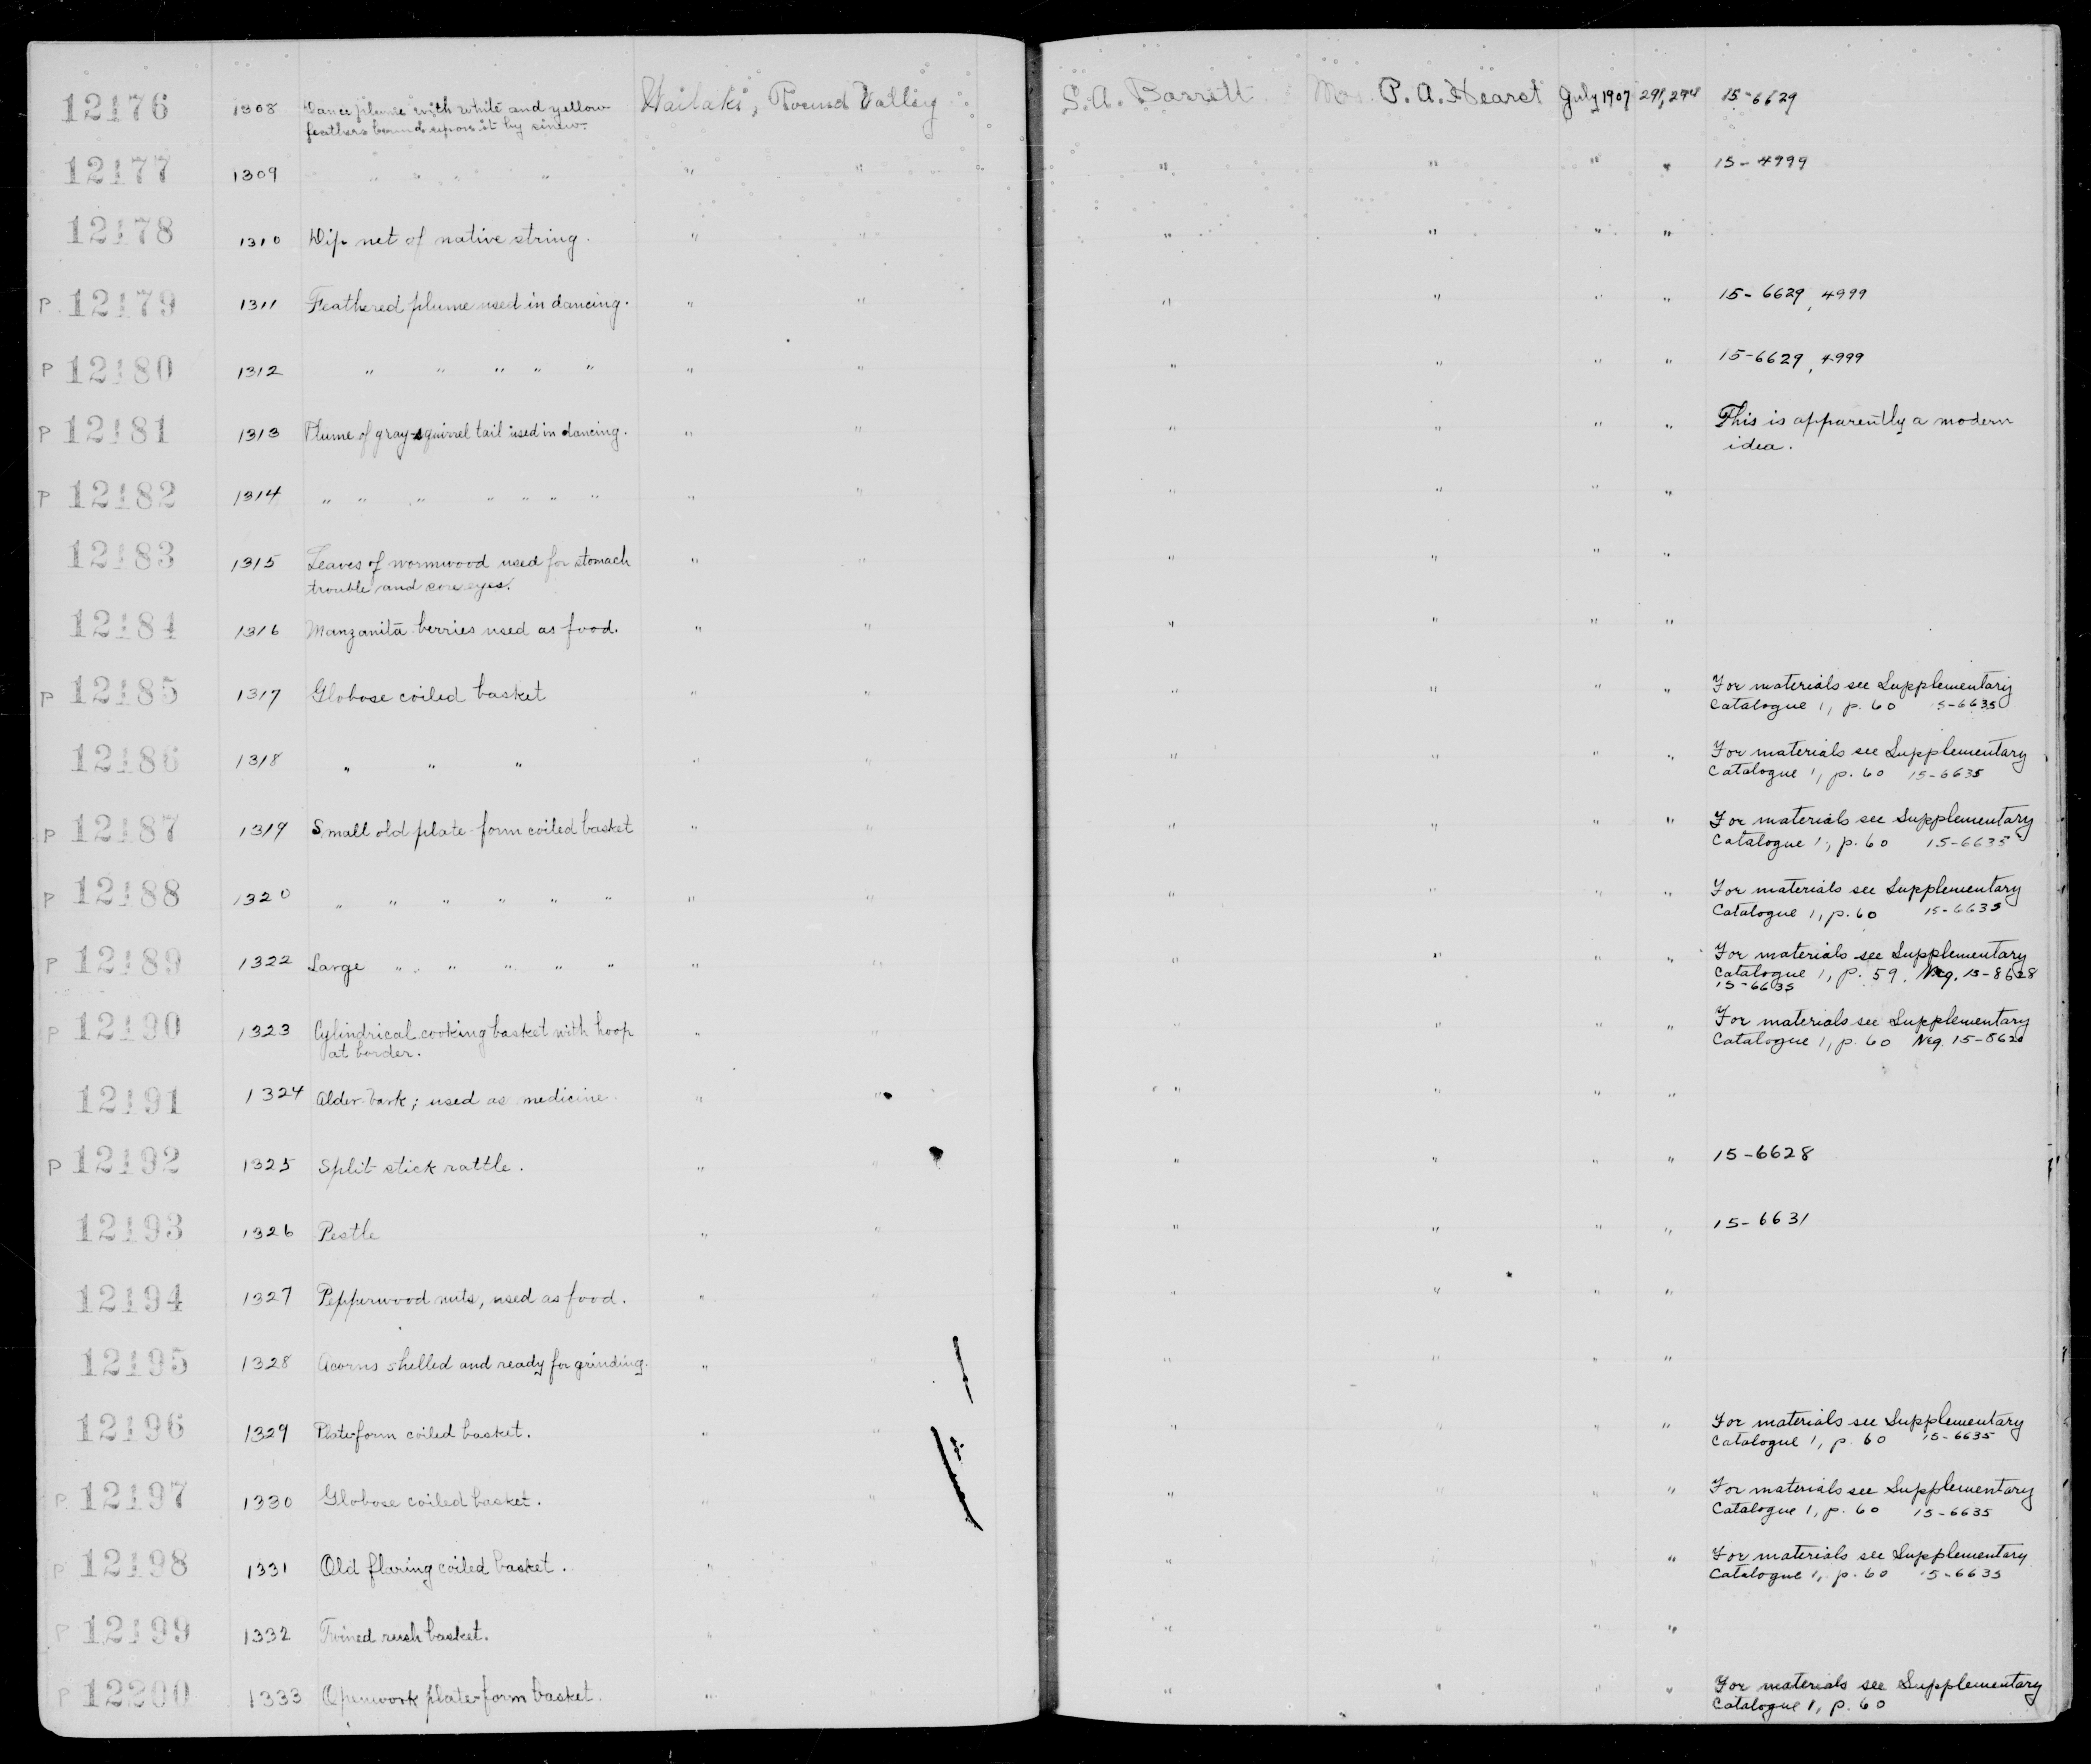 12176 1308 Dance plume with white and yellow Wailaki, Round Valley S. A. Barrett Mrs. P. A. Hearst July 1907 291, 294 15-6629
feathers bound upon it by sinew.
12177 1309 " " " " " " " " " " 15-4999
12178 1310 Dip net of native string. " " " " " "
P 12179 1311 Feathered plume used in dancing. " " " " " " 15-6629, 4999
P 12180 1312 " " " " " " " " " " " 15-6629, 4999
P 12181 1313 Plume of gray-squirrel tail used in dancing. " " " " " " This is apparently a modern
idea.
P 12182 1314 " " " " " " " " " " " " "
12183 1315 Leaves of wormwood used for stomach " " " " " "
trouble and sore eyes.
12184 1316 Manzanita berries used as food. " " " " " "
P 12185 1317 Globose coiled basket " " " " " " For materials see Supplementary
Catalogue 1, p. 60 15-6635
12186 1318 " " " " " " " " " For materials see Supplementary
Catalogue 1, p. 60 15-6635
P 12187 1319 Small old plate-form coiled basket " " " " " " For materials see Supplementary
Catalogue 1, p. 60 15-6635
P 12188 1320 " " " " " " " " " " " " For materials see Supplementary
Catalogue 1, p. 60 15-6635
P 12189 1322 Large " " " " " " " " " " " For materials see Supplementary
Catalogue 1, p. 59. Neg. 15-8628
15-6635
P 12190 1323 Cylindrical cooking basket with hoop " " " " " " For materials see Supplementary
at border. Catalogue 1, p. 60 Neg. 15-8620
12191 1324 Alder bark; used as medicine. " " " " " "
P 12192 1325 Split stick rattle. " " " " " " 15-6628
12193 1326 Pestle " " " " " " 15-6631
12194 1327 Pepperwood nuts, used as food. " " " " " "
12195 1328 Acorns shelled and ready for grinding. " " " " " "
12196 1329 Plate-form coiled basket. " " " " " " For materials see Supplementary
Catalogue 1, p. 60 15-6635
P 12197 1330 Globose coiled basket. " " " " " " For materials see Supplementary
Catalogue 1, p. 60 15-6635
P 12198 1331 Old flaring coiled basket. " " " " " " For materials see Supplementary
Catalogue 1, p. 60 15-6635
P 12199 1332 Twined rush basket. " " " " " "
P 12200 1333 Openwork plate-form basket. " " " " " " For materials see Supplementary
Catalogue 1, p. 60